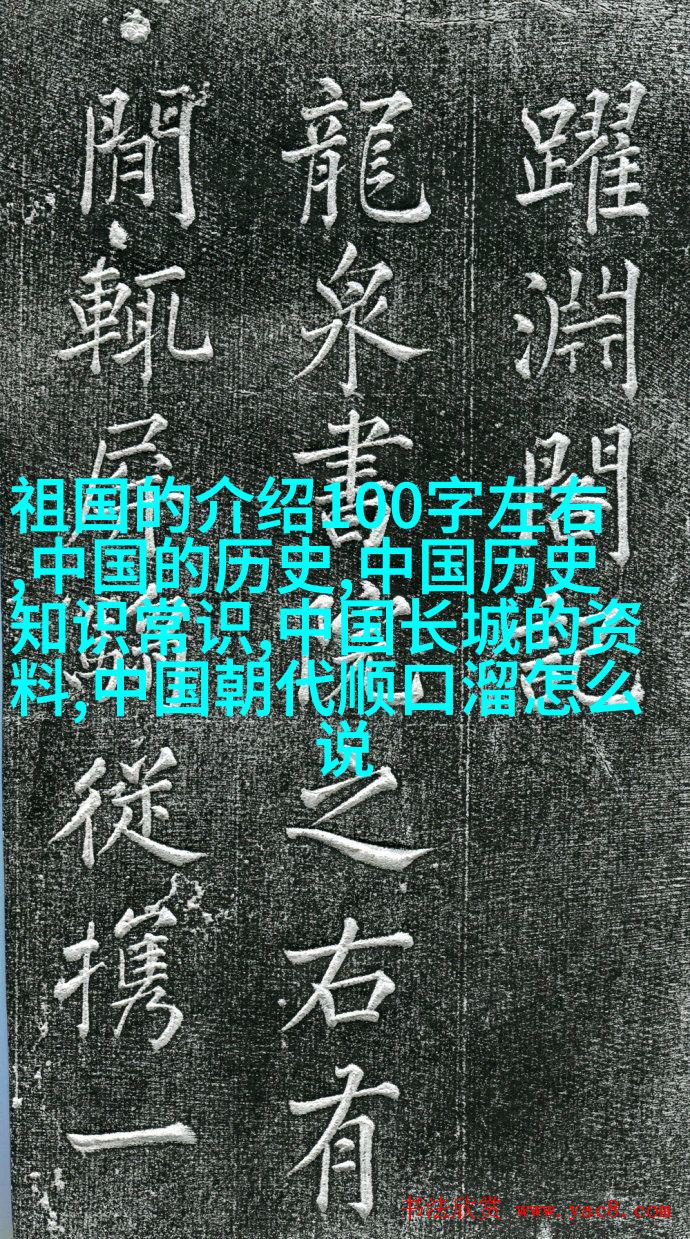 躍淵閣記
龍泉書院之右有
閒輒屏從攜一
祖国的介绍100字左右
,中国的历史,中国历史
知识常识,中国长城的资
料,中国朝代顺口溜怎么
说
书法欣赏 www.yac8.com